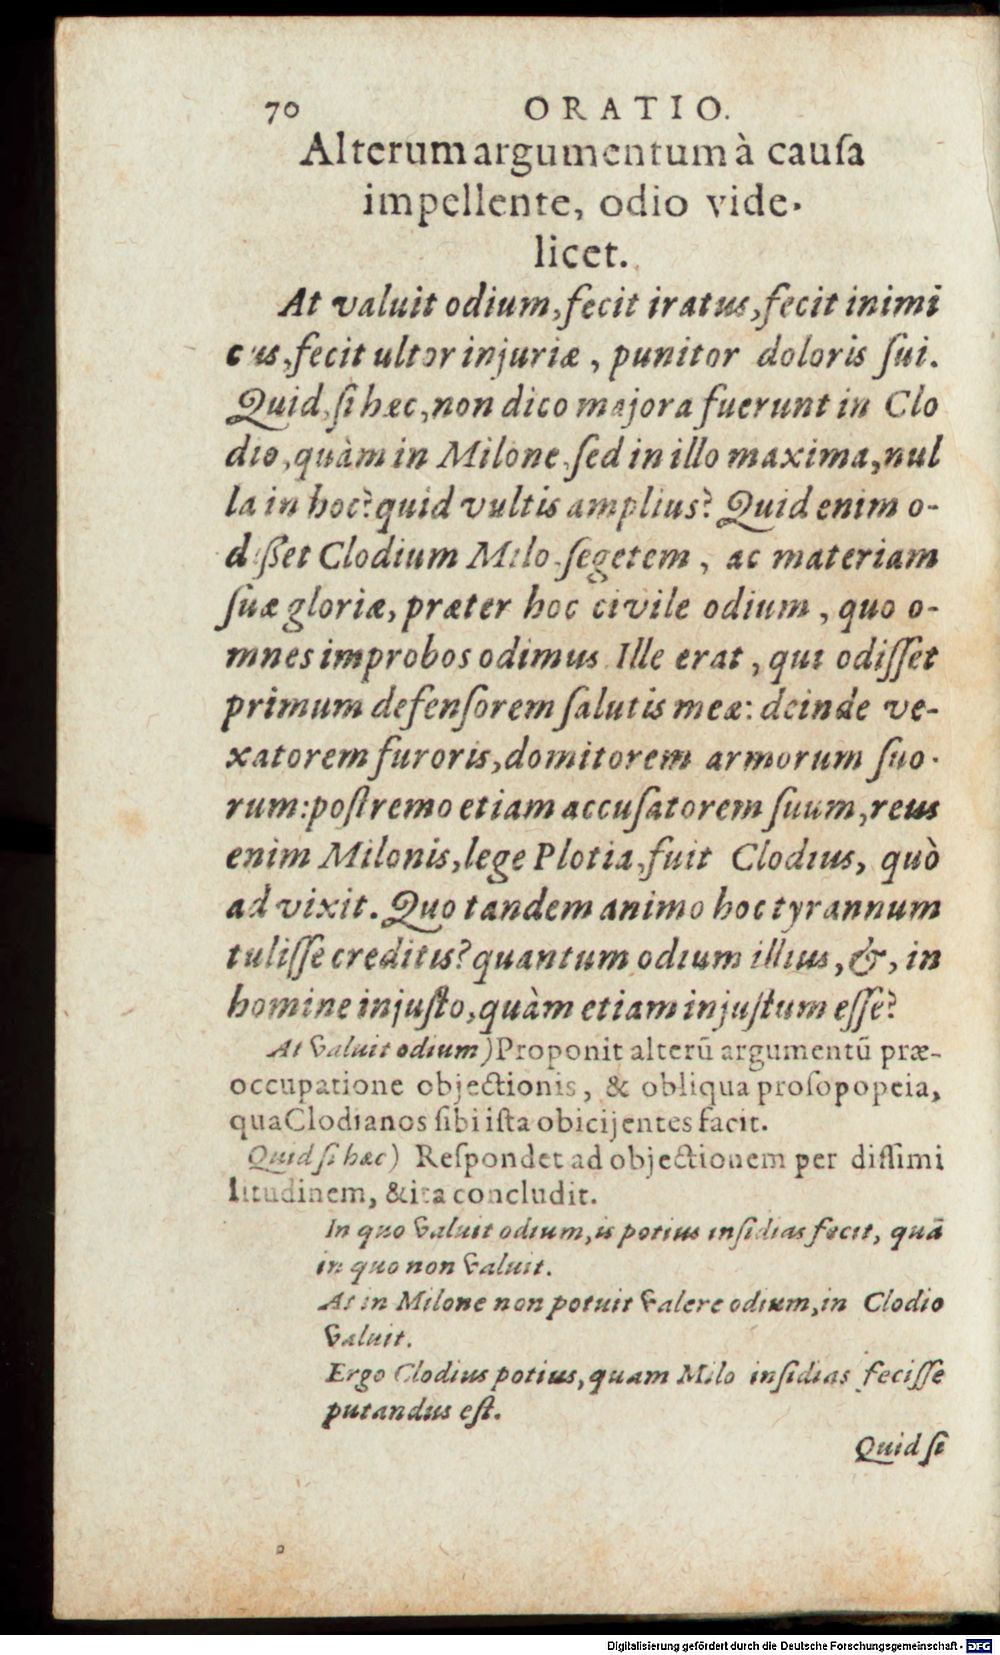 70 ORATIO.
Alterum argumentum à cauſa
impellente, odio vide-
licet.
At valuit odium, fecit iratus, fecit inimi
cus, fecit ultor injuriæ, punitor doloris ſui.
Quid, ſi hæc, non dico majora fuerunt in Clo
dio, quàm in Milone, ſed in illo maxima, nul
la in hoc? quid vultis amplius? Quid enim o-
diſſet Clodium Milo, ſegetem, ac materiam
ſuæ gloriæ, præter hoc civile odium, quo o-
mnes improbos odimus. Ille erat, qui odiſſet
primum defenſorem ſalutis meæ: deinde ve-
xatorem furoris, domitorem armorum ſuo-
rum: poſtremo etiam accuſatorem ſuum, reus
enim Milonis, lege Plotia, fuit Clodius, quò
ad vixit. Quo tandem animo hoc tyrannum
tuliſſe creditis? quantum odium illius, &, in
homine injuſto, quàm etiam injuſtum eſſe?
At valuit odium) Proponit alterũ argumentũ præ-
occupatione objectionis, & obliqua proſopopeia,
qua Clodianos ſibi iſta obicijentes facit.
Quid ſi hæc) Reſpondet ad objectionem per diſſimi
litudinem, & ita concludit.
In quo valuit odium, is potius inſidias fecit, quã
in quo non valuit.
At in Milone non potuit valere odium, in Clodio
valuit.
Ergo Clodius potius, quam Milo inſidias feciſſe
putandus eſt.
Quid ſi
Digitalisierung gefördert durch die Deutsche Forschungsgemeinschaft - DFG